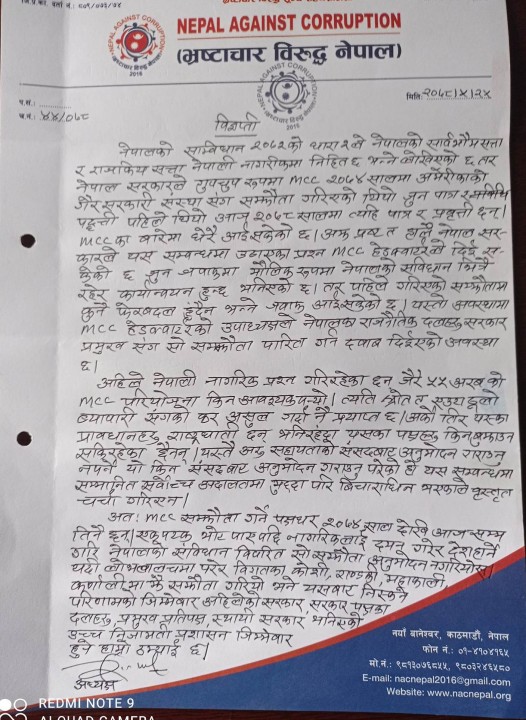 जि.प्र.का. दर्ता नं.: ८०९/०७३/७४
NEPAL AGAINST CORRUPTION
2016
NEPAL AGAINST CORRUPTION
(भ्रष्टाचार विरुद्ध नेपाल)
NEPAL AGAINST CORRUPTION
2016
प.सं.:
च.नं.: ४४/०७८
मिति: २०७८/५/२५
विज्ञप्ती
नेपालको संम्बिधान २०७२को धारा २ले नेपालको सार्वभौमसत्ता
र राजकिय सत्ता नेपाली नागरीकमा निहित छ भन्ने लेखिएको छ तर
नेपाल सरकारले गुपचुप रूपमा MCC २०७४सालमा अमेरीकाको
गैरसरकारी संस्था संग सम्झौता गरिएको थियो जुन पात्र र
पद्दत्ती पहिले थियो आज २०७८सालमा त्यहि पात्र र प्रबृत्ती छन्।
MCC का बारेमा धेरै आईसकेको छ। अरू प्रष्ट त हालै नेपाल सर-
कारले यस सम्बन्धमा उठाएका प्रश्न MCC हेडक्वाटरले दिई स-
केको छ जुन जवाफमा मौलिक रूपमा नेपालको संविधान भित्रै
रहेर कार्यान्वयन हुन्छ भनिएको छ। तर पहिले गरिएको सम्झौतामा
कुनै फेरबदल हुँदैन भन्ने जवाफ आईसकेको छ। यस्तो अवस्थामा
MCC हेडक्वाटरको उपाध्यक्षले नेपालका राजनैतिक दलहरु सरकार
प्रमुख संग सो सम्झौता पारित गर्न दवाब दिईएको अवस्था
छ।
अहिले नेपाली नागरिक प्रश्न गरिरहेका छन् जेरै ५५ अरब को
MCC परियोजना किन आवश्यक पर्‍यो। त्यति श्रोत त एउटा ठूलो
ब्यापारी संगको कर असुल गर्दा नै प्रयाप्त छ। अर्को तिर यसका
प्राबधानहरु राष्ट्रघाती छन् भनिरहँदा यसका पक्षले किन बुझाउन
सकिरहेका छैनन्। यस्तै अरू सहायताको संसदबाट अनुमोदन गराउन
नपर्ने यो किन संसदबाट अनुमोदन गराउनु परेको हो यस सम्बन्धमा
सम्मानित सर्वोच्च अदालतमा मुद्दा परि बिचाराधिन भएकोले बृस्तृत
चर्चा गरिएन।
अत: MCC सम्झौता गर्ने पक्षधर २०७४ साल देखि आज सम्म
तिनै छन्। नागरिकलाई
गरि नेपालको संविधान विपरित सो सम्झौता अनुमोदन नगरियोस्।
यदी लोभलालचमा परेर विगतका कोशी, गण्डकी, महाकाली,
कर्णालीमा झैं सम्झौता गरियो भने यसबाट निस्कने
परिणामको जिम्मेवार अहिलेको सरकार सरकार पक्षका
दलहरु, प्रमुख प्रतिपक्ष, स्थायी सरकार भनिएको
उच्च निजामती प्रशासन जिम्मेवार
हुने हाम्रो ठम्याई छ।
अध्यक्ष
नयाँ बानेश्वर, काठमाडौं, नेपाल
फोन नं.: ०१-४१०४१६५
मो.नं.: ९८१३०७६८५५, ९८०३२४६५८०
E-mail: nacnepal2016@gmail.com
Website: www.nacnepal.org
REDMI NOTE 9
AI QUAD CAMERA